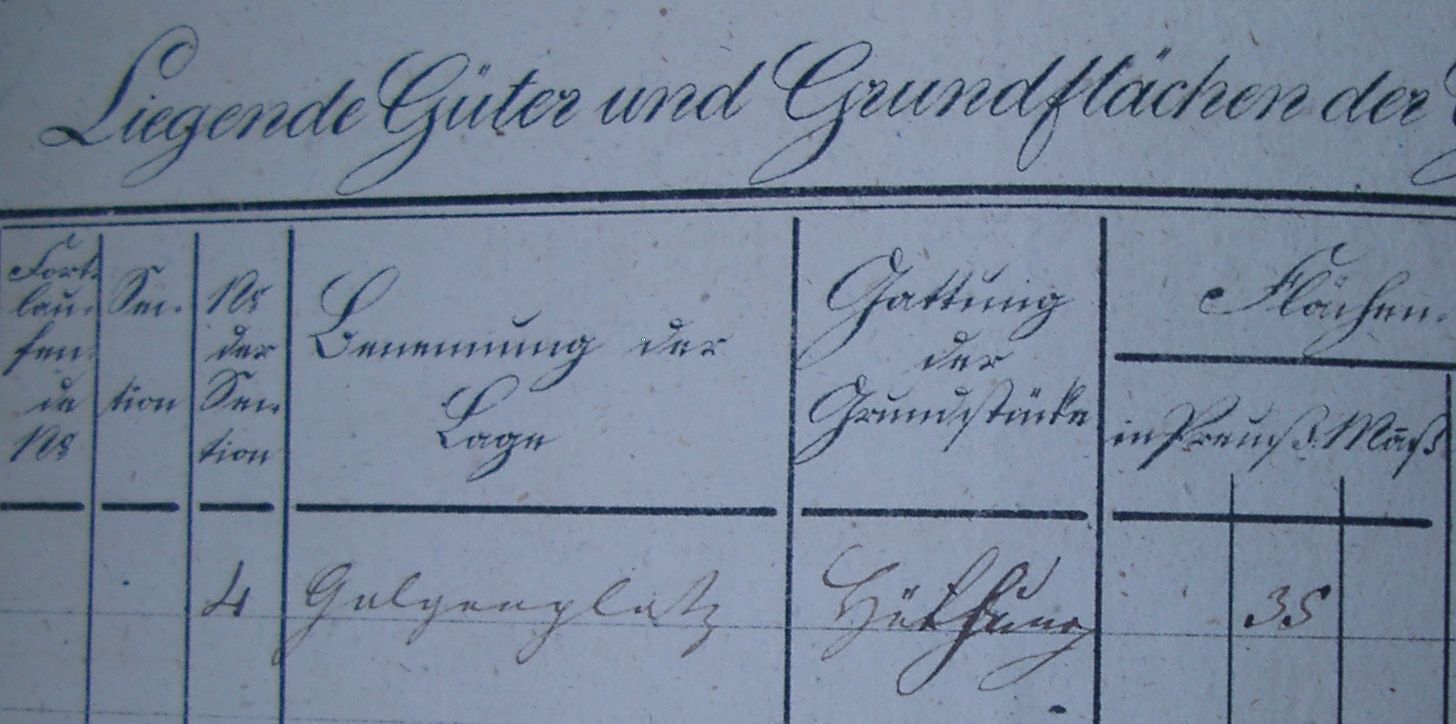 Liegende Güter und Grundflächen der
Fort-
lau-
fen-
de
No
Sec-
tion
No
der
Sec-
tion
Benennung der
Lage
Gattung
der
Grundstücke
Flächen-
in Preuß. Maß
4 Galgenplatz Hüthung 35